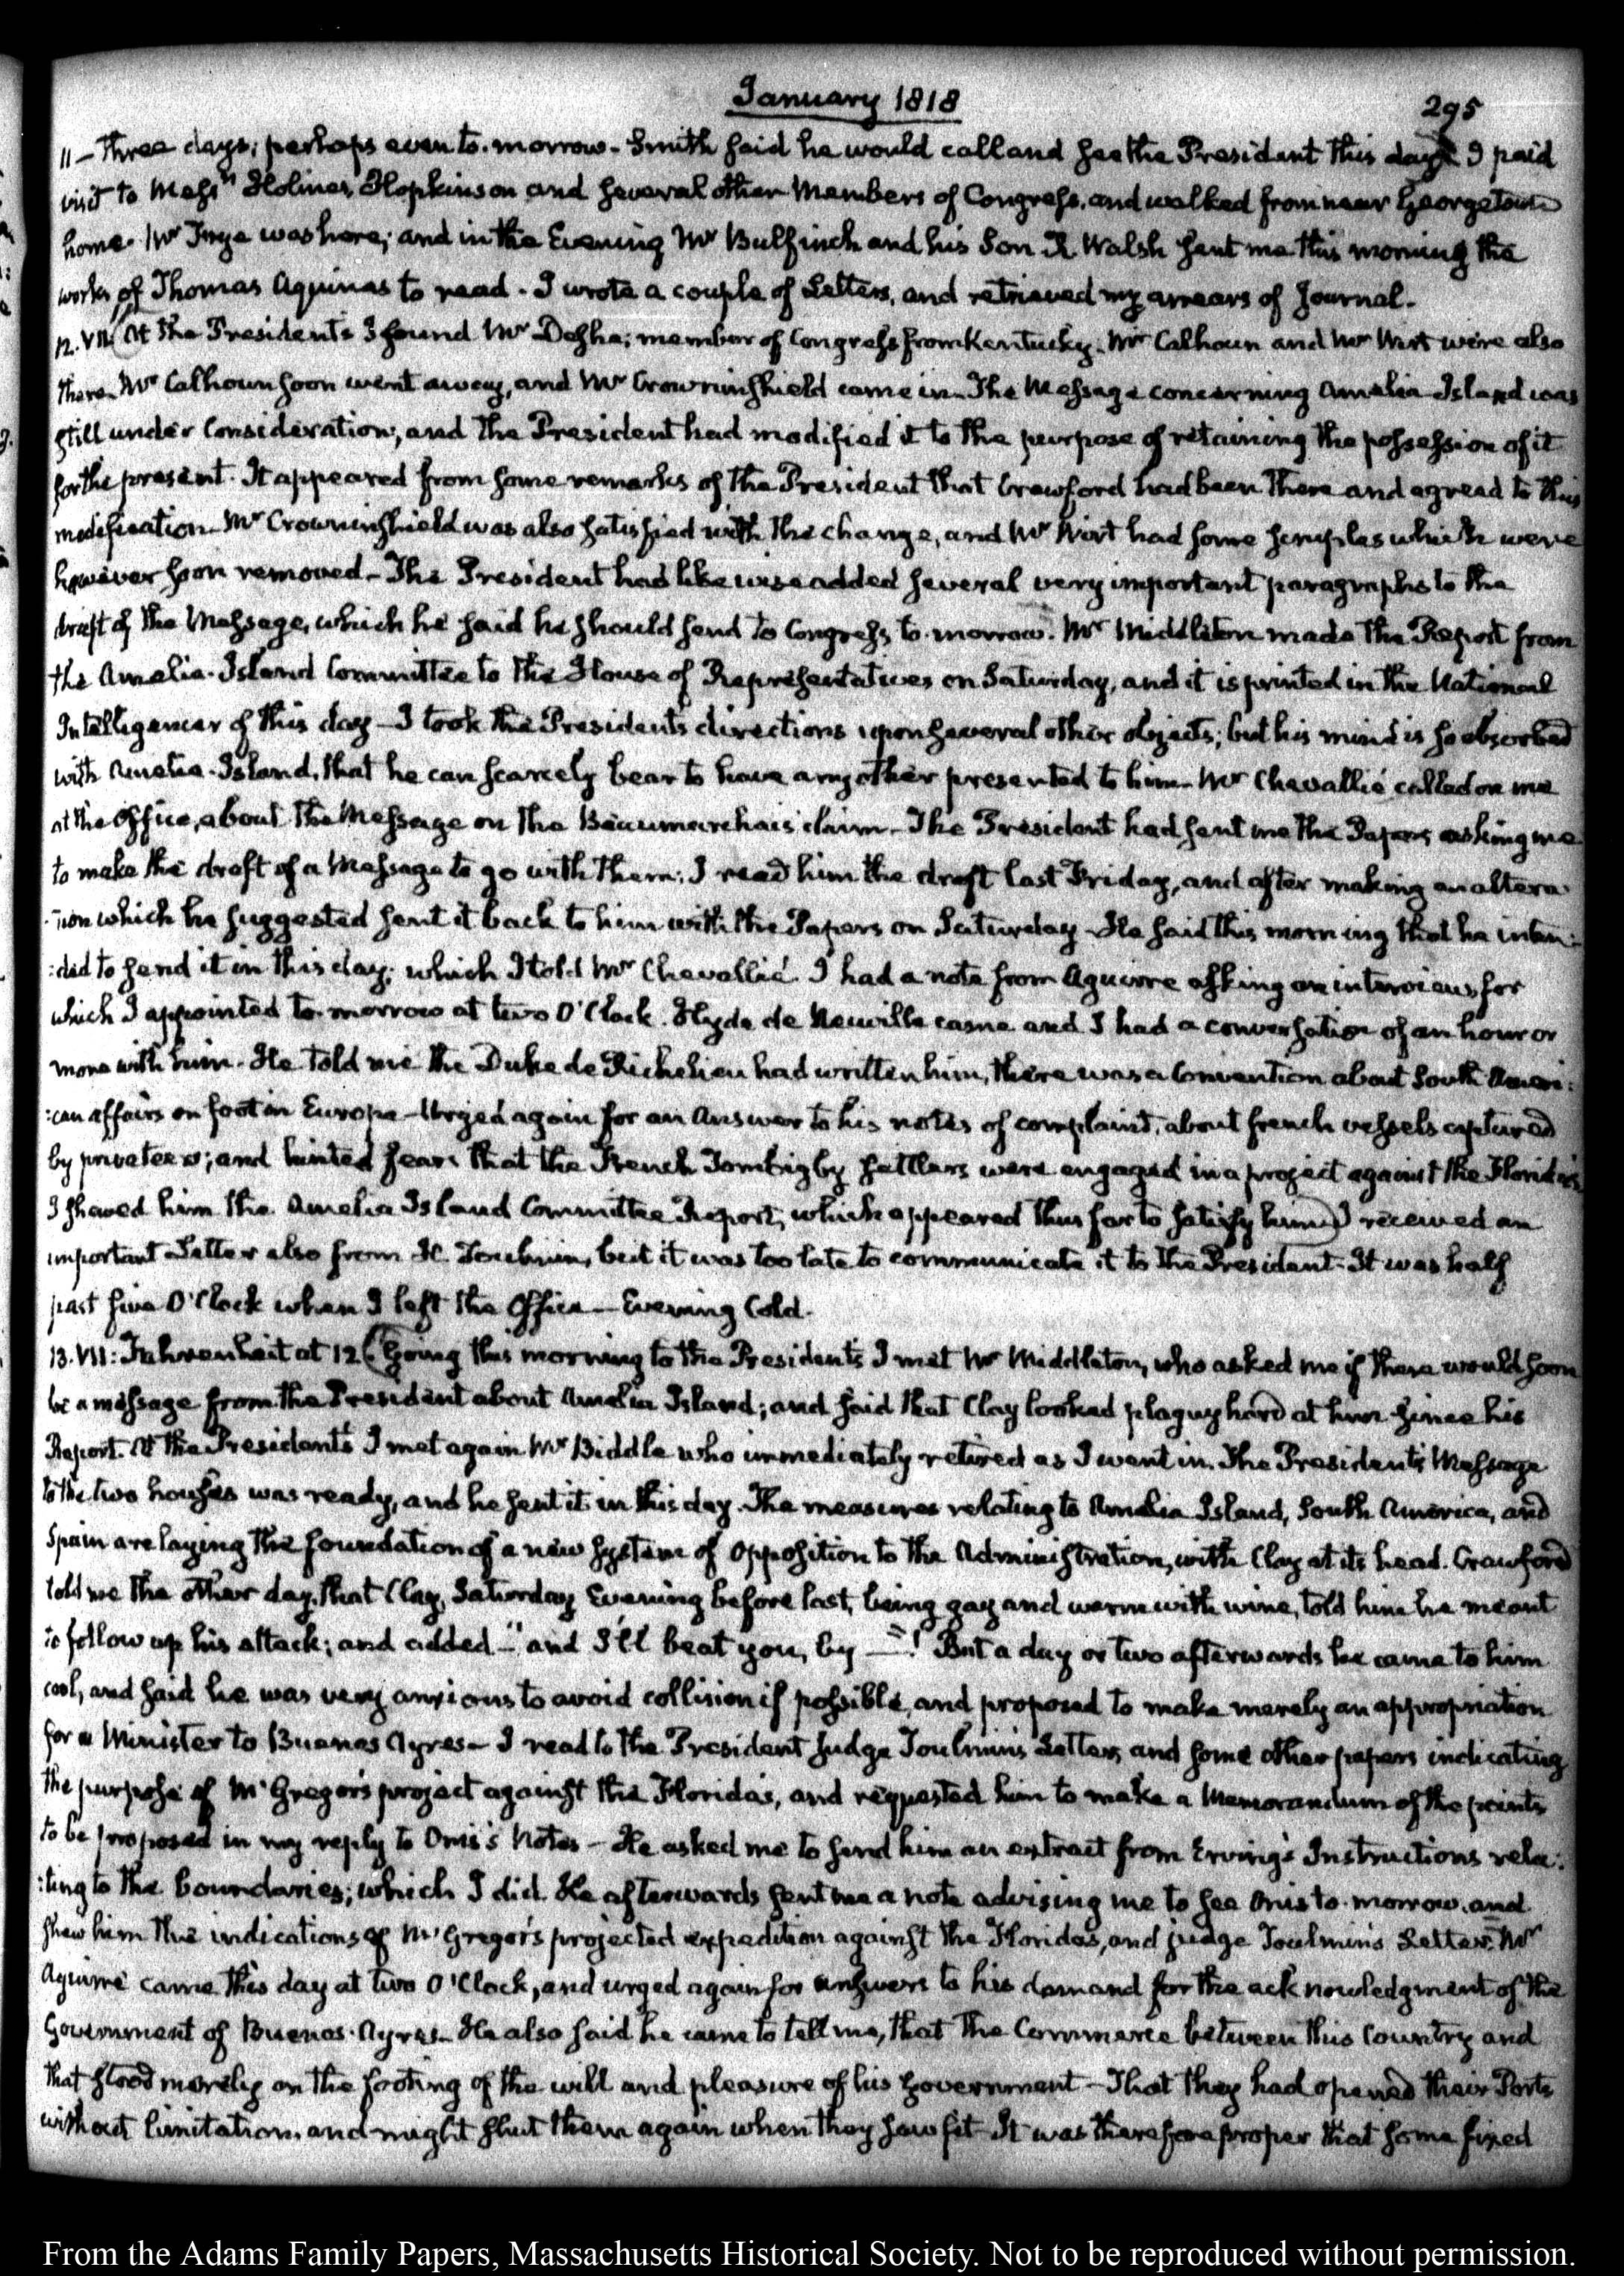 January 1818
295
11 — Three days; perhaps even to-morrow. Smith said he would call and see the President this day. I paid
visit to Messrs Holmes, Hopkinson and several other Members of Congress, and walked from near Georgetown
home. Mr Inge was here; and in the Evening Mr Bulfinch and his Son R. Walsh sent me this morning the
works of Thomas Aquinas to read. I wrote a couple of Letters, and retrieved my arrears of Journal.
12. VII. At the President's I found Mr Desha; member of Congress from Kentucky. Mr Calhoun and Mr Wirt were also
there. Mr Calhoun soon went away, and Mr Crowninshield came in. The Message concerning Amelia-Island was
still under Consideration, and the President had modified it to the purpose of retaining the possession of it
for the present. It appeared from some remarks of the President that Crawford had been there and agreed to this
modification. Mr Crowninshield was also satisfied with the change, and Mr Wirt had some scruples which were
however soon removed. The President had likewise added several very important paragraphs to the
draft of the Message, which he said he should send to Congress to-morrow. Mr Middleton made the Report from
the Amelia-Island Committee to the House of Representatives on Saturday, and it is printed in the National
Intelligencer of this day — I took the President's directions upon several other objects; but his mind is so absorbed
with Amelia-Island, that he can scarcely bear to have any other presented to him. Mr Chevallié called on me
at the Office, about the Message on the Beaumarchais claim. The President had sent me the Papers, asking me
to make the draft of a Message to go with them; I read him the draft last Friday, and after making an altera
tion which he suggested sent it back to him with the Papers on Saturday. He said this morning that he inten:
:ded to send it in this day; which I told Mr Chevallié. I had a note from Aguirre asking an interview, for
which I appointed to-morrow at two O'Clock. Hyde de Neuville came and I had a conversation of an hour or
more with him. He told me the Duke de Richelieu had written him, there was a Convention about South Ameri:
:can affairs on foot in Europe — Urged again for an Answer to his notes of complaint, about french vessels captured
by privateers; and hinted fears that the French Tombigby settlers were engaged in a project against the Florida's.
I shewed him the Amelia Island Committee Report, which appeared thus far to satisfy him. I received an
important Letter also from H. Toulmin, but it was too late to communicate it to the President. It was half
past five O'Clock when I left the Office — Evening Cold.
13. VII: Fahrenheit at 12 Going this morning to the President's I met Mr Middleton, who asked me if there would soon
be a message from the President about Amelia Island; and said that Clay looked plaguy hard at him since his
Report. At the President's I met again Mr Biddle who immediately retired as I went in. The President's Message
to the two houses was ready, and he sent it in this day. The measures relating to Amelia Island, South America, and
Spain are laying the foundation of a new system of opposition to the Administration, with Clay at its head. Crawford
told me the other day, that Clay, Saturday Evening before last, being gay and warm with wine, told him he meant
to follow up his attack; and added — "and I'll beat you, by —"! But a day or two afterwards he came to him
cool, and said he was very anxious to avoid collision if possible, and proposed to make merely an appropriation
for a Minister to Buenos Ayres — I read to the President Judge Toulmin's Letters, and some other papers indicating
the purpose of McGregor's project against the Florida's, and requested him to make a Memorandum of the points
to be proposed in my reply to Onis's Notes — He asked me to send him an extract from Erving's Instructions rela:
:ting to the boundaries; which I did. He afterwards sent me a note advising me to see Onis to-morrow, and
shew him the indications of McGregor's projected expedition against the Floridas, and judge Toulmin's Letter. Mr
Aguirre came this day at two O'Clock, and urged again for answers to his demand for the acknowledgment of the
Government of Buenos-Ayres. He also said he came to tell me, that the Commerce between this Country and
that stood merely on the footing of the will and pleasure of his Government — That they had opened their Ports
without limitation, and might shut them again when they saw fit. It was therefore proper that some fixed
From the Adams Family Papers, Massachusetts Historical Society. Not to be reproduced without permission.